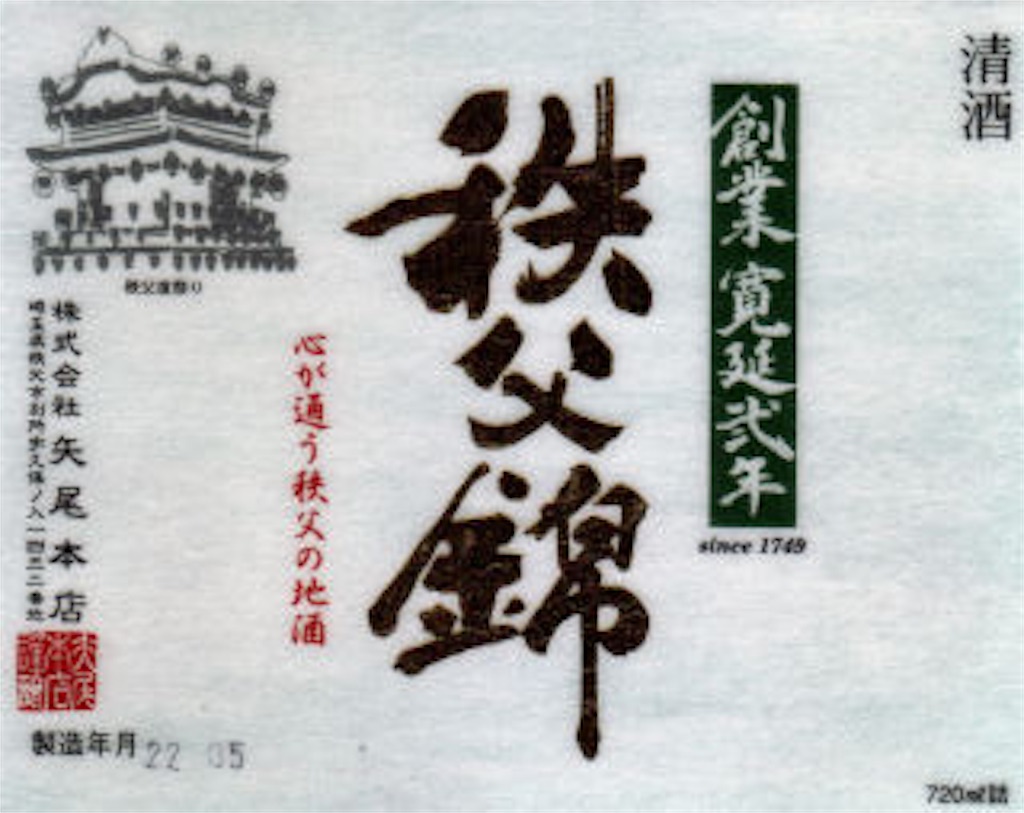 清酒
創業 寛延弐年
since 1749
秩父錦
心が通う秩父の地酒
秩父夜祭り
株式会社 矢尾本店
埼玉県秩父市別所字久保ノ入一四三二番地
製造年月 22 05
720㎖詰